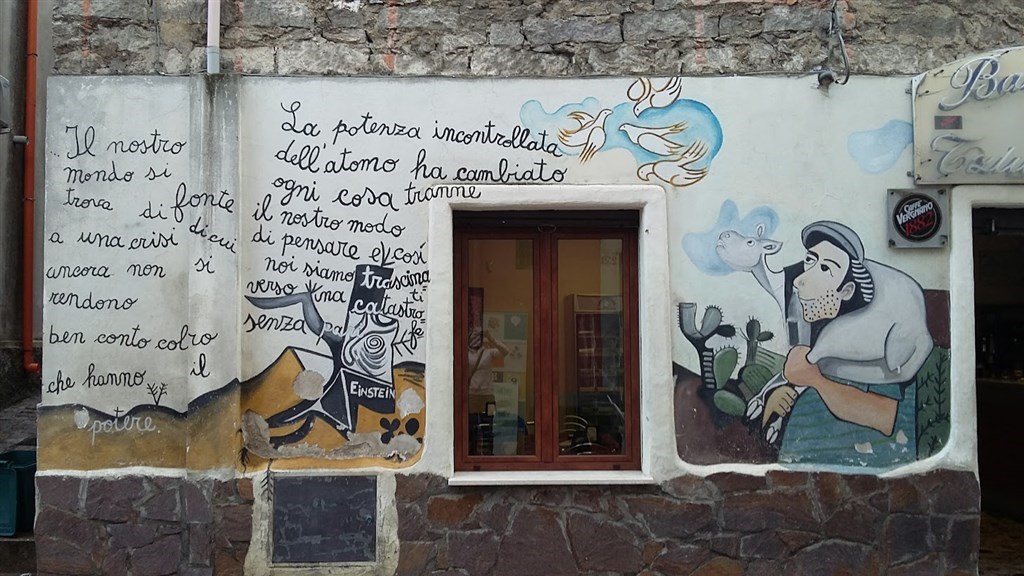 Il nostro
mondo si
trova di fonte
a una crisi di cui
ancora non si
rendono
ben conto colro
che hanno il
potere.
La potenza incontrollata
dell'atomo ha cambiato
ogni cosa tranne
il nostro modo
di pensare e così
noi siamo trascina
ti
verso una catastro=
fe
senza
EINSTEIN
CAFFÈ
VERGNANO
1882
Ba